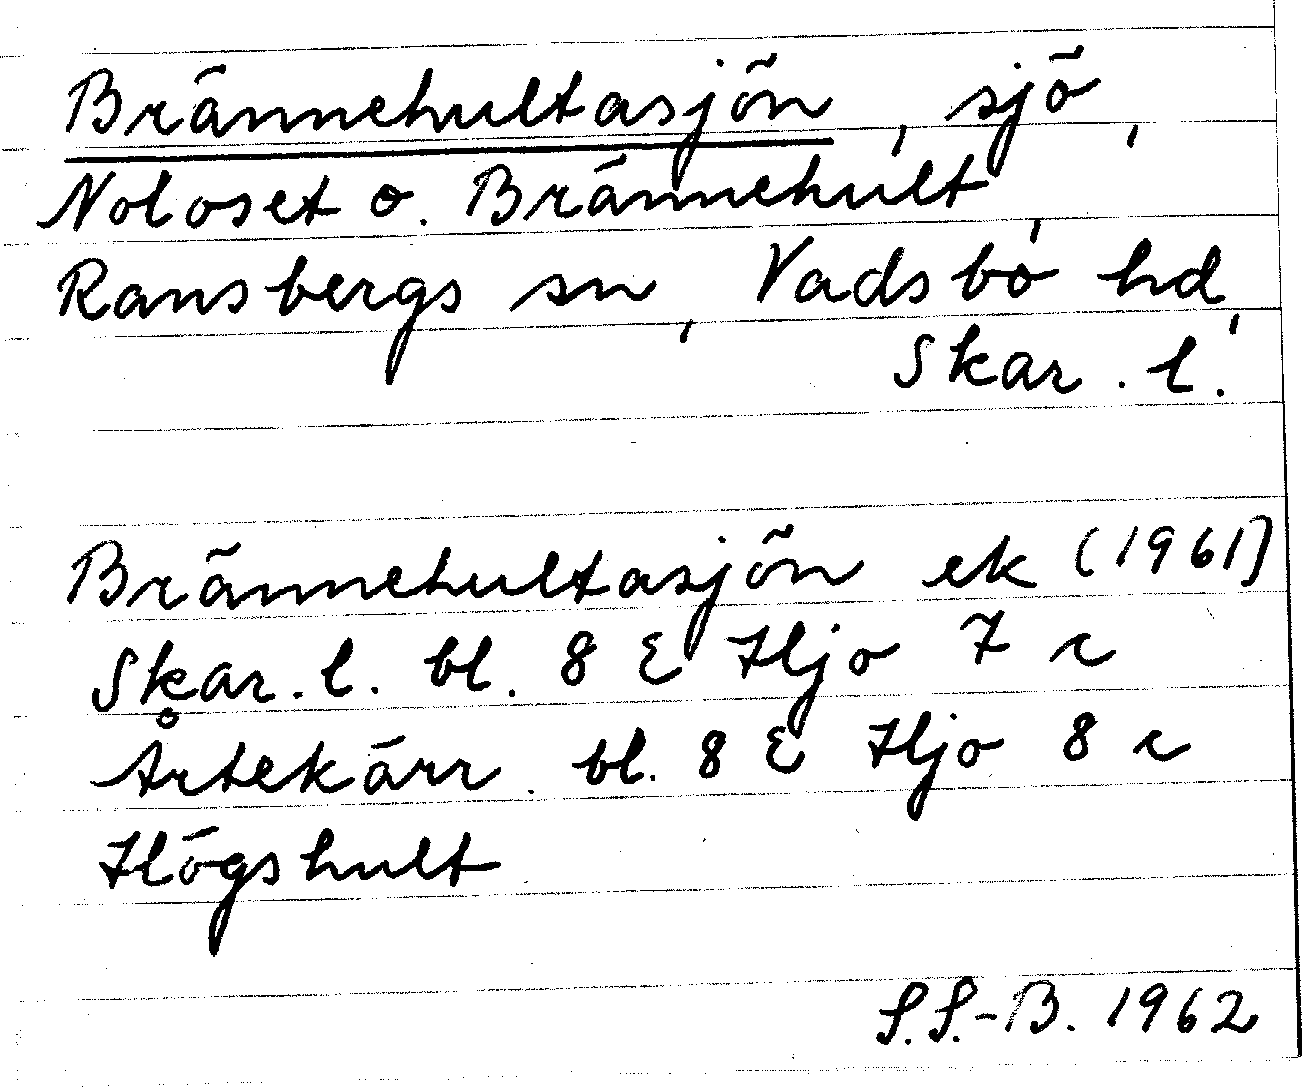 Brännehultasjön, sjö,
Noloset o. Brännehult,
Ransbergs sn, Vadsbo hd,
Skar. l.
Brännehultasjön ek (1961)
Skar. l. bl. 8 E Hjo 7 c
Årtekärr. bl. 8 E Hjo 8 c
Högshult
S.S.-B. 1962